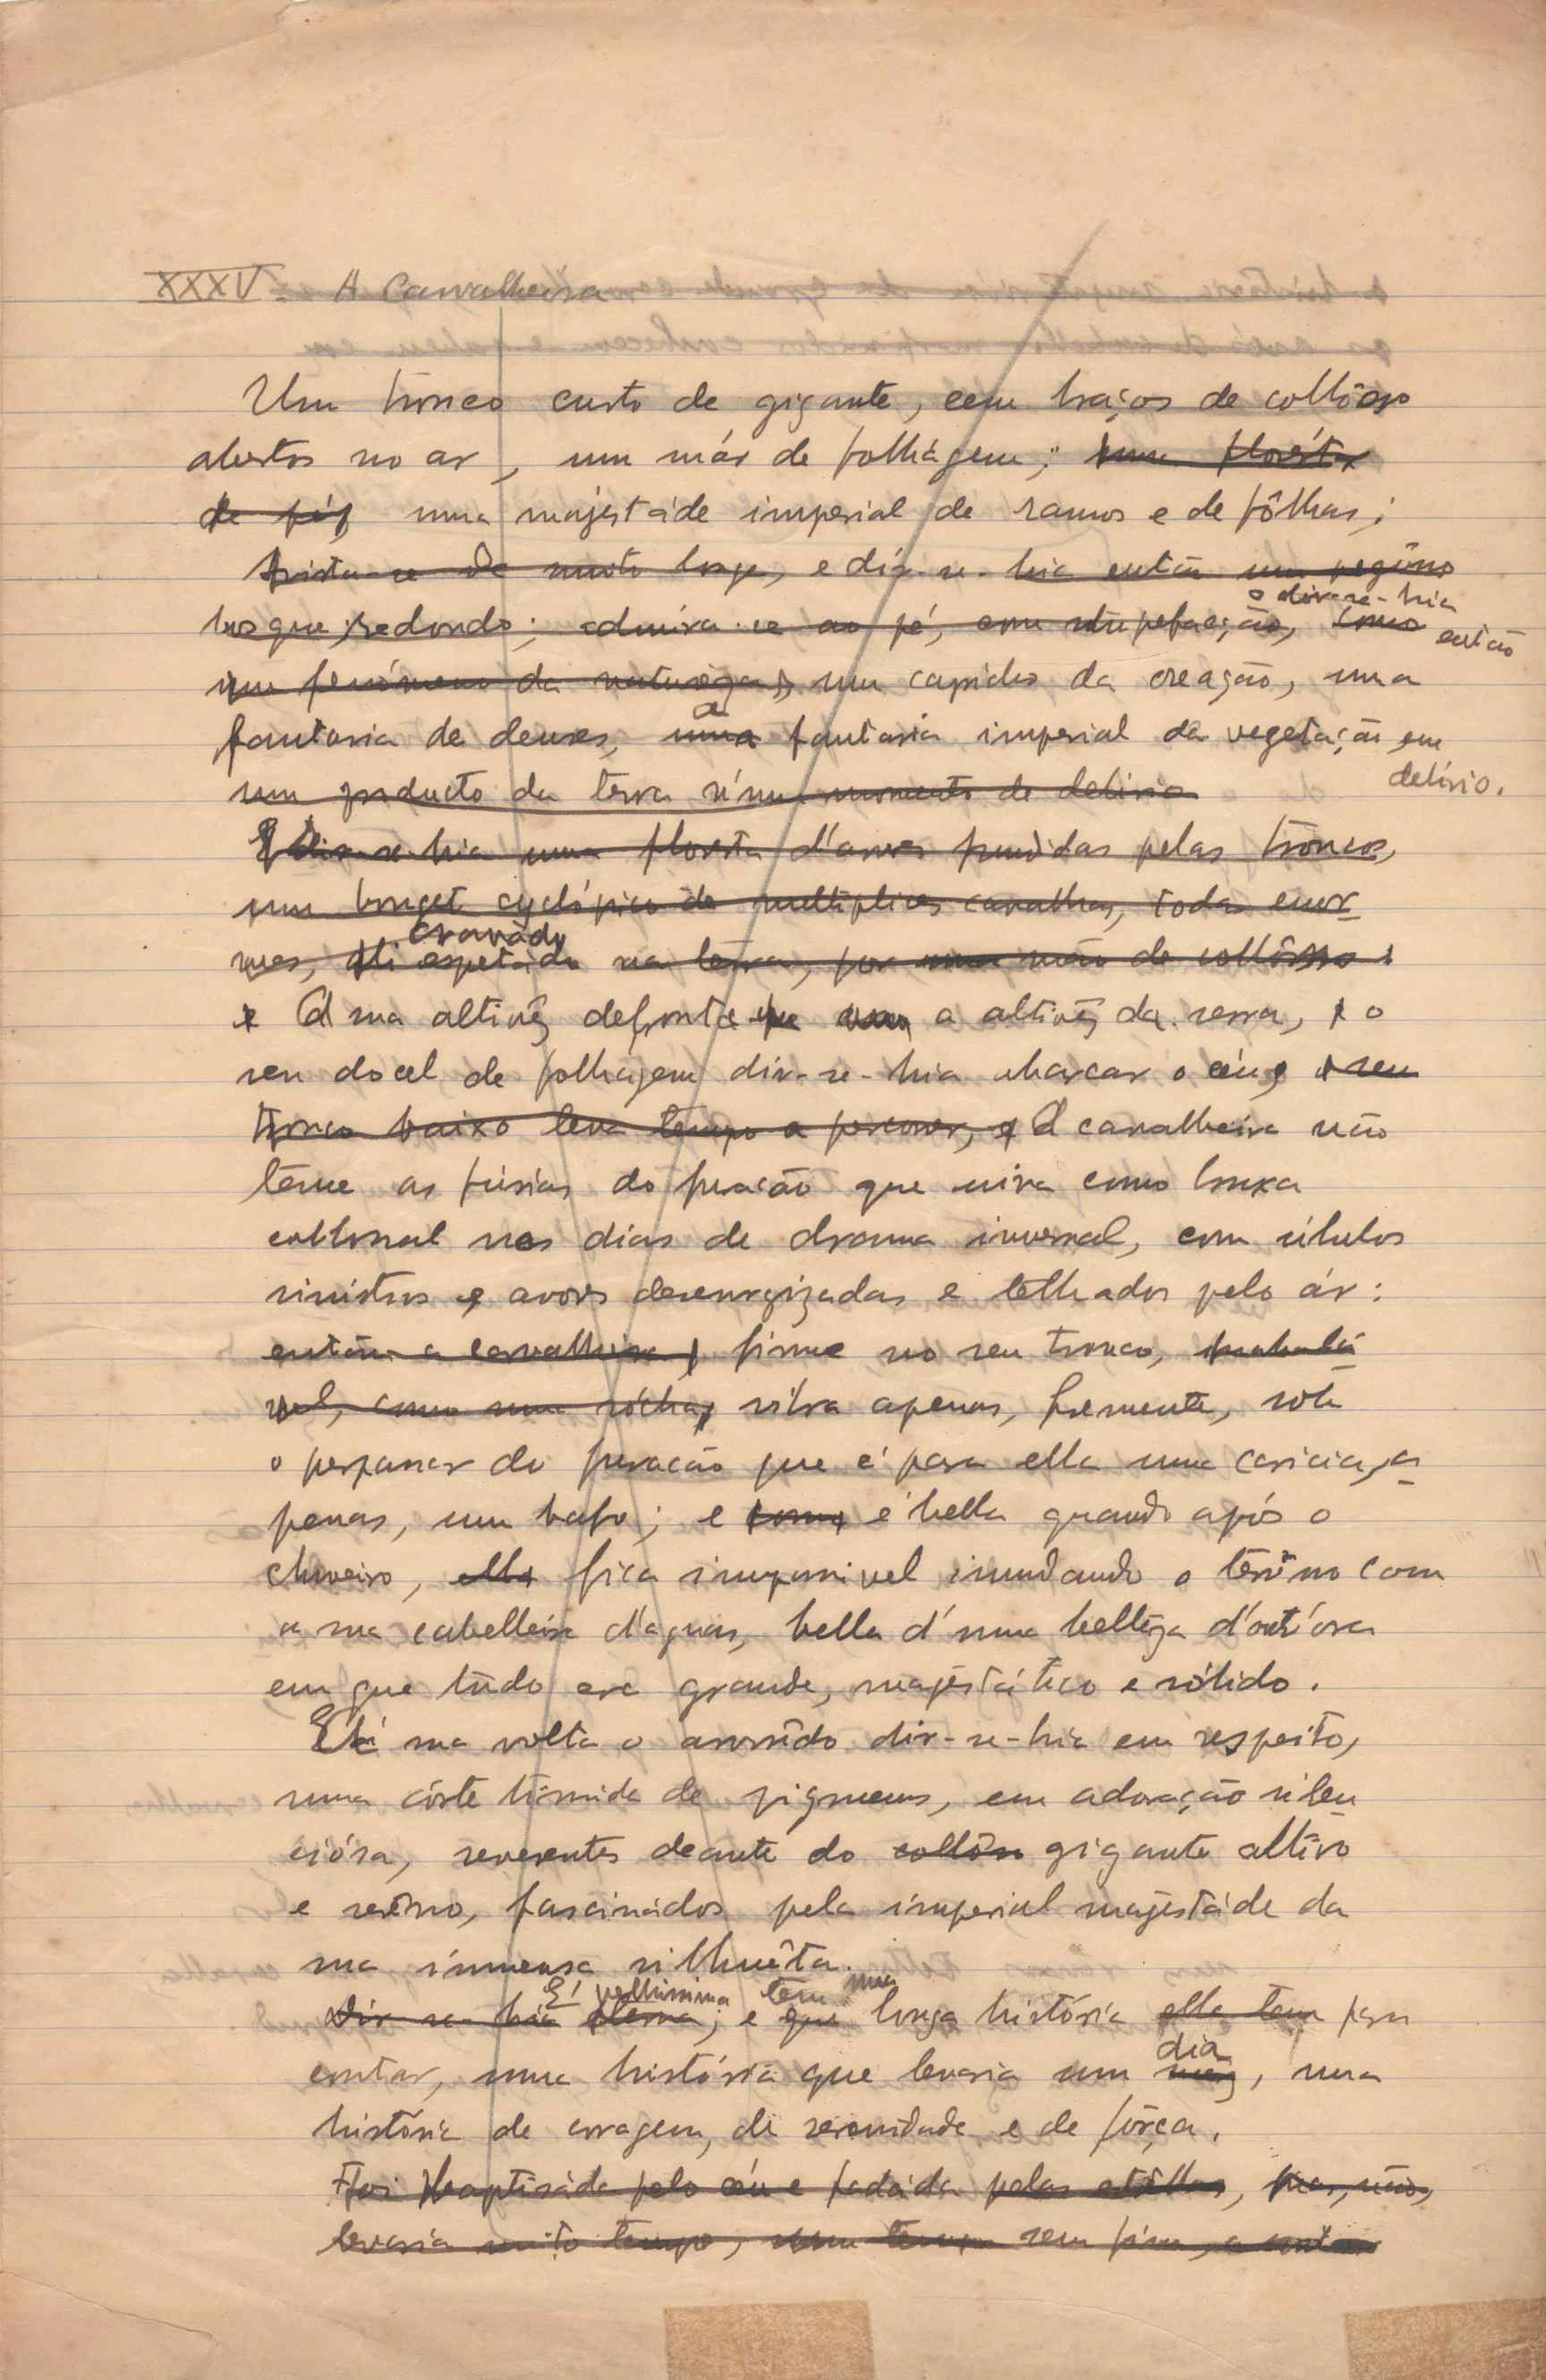 XXXV - A Carvalheira
Um tronco curto de gigante, cem braços de collósso
abertos no ar, um már de folhágem; uma florésta
de pé, uma majestáde imperial de ramos e de fôlhas;
Avista-se de muito longe, e dir-se-hia então um pequeno
bosque redondo; admira-se ao pé, com stupefacção, como
o dir-se-hia então
um fenómeno da naturêza, um capricho da creação, uma
fantasia de deuses, uma a fantasia imperial da vegetação em
delírio.
um producto da terra n'um momento de delirio
E Dir-se-hia uma floresta d'arvores fundidas pelos troncos,
um bouqet cyclópico de multiplices carvalhas, todas enor-
cravado
mes, ali espetado na terra, por uma mão de collósso.
A sua altivêz defronta a altivêz da serra, o
seu docel de folhágem dir-se-hia abarcar o céu, o seu
tronco baixo leva tempo a percorrer, e A carvalheira não
tême as fúrias do furacão que uiva como bruxa
collossal nos dias de drama invernal, com síbulos
sinistros e arvores desenraizadas e telhados pelo ár:
então a carvalheira, firme no seu tronco, inabalá-
vel, como uma rócha, silva apenas, fremente, sob
o perpassar do furacão que é para ella uma caricia, a-
penas, um bafo; e como é bella quando após o
chuveiro, ella fica impassivel inundando o terreno com
a sua cabelleira d'aguas, bella d'uma bellêza d'outr'óra
em que tudo era grande, majestático e sólido.
Á sua volta o arvorêdo dir-se-hia em respeito,
uma córte tímida de pigmeus, em adoração silen-
cíósa, reverentes deante do collósso gigante altivo
e serêno, fascinádos pela imperial majestáde da
sua immensa silhuêta.
É velhissima tem uma
Dir-se-hia eterna, e que longa história ella tem para
contar, uma história que levaria um mêz dia, uma
história de coragem, de serenidade e de fôrça.
Foi baptisáda pelo céu e fadáda pelas estrêllas, mas, não,
levaria muito tempo, um tempo sem fim, a contar